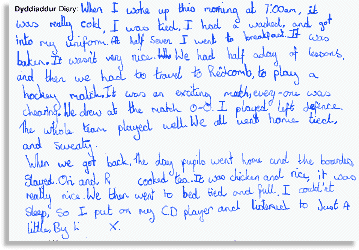 Dyddiaddur Diary: When I woke up this morning at 7:00am, it
was really cold, I was tied, I had a washed, and got
into my uniform. At half seven I went to breakfast. It was
baken. It wasn't very nice. We had half a day of lessons,
and then we had to travel to Redcomb, to play a
hockey match. It was an exciting match, every-one was
chearing. We drew at the match 0-0. I played left defence.
The whole team played well. We all went home tied,
and sweaty.
When we got back, the day pupils went home and the boarders
stayed. Oli and R cooked tea. It was chicken and rice, it was
really nice. We then went to bed tied and full. I could'et
sleep, so I put on my CD player and listened to Just A
little, By Li X.